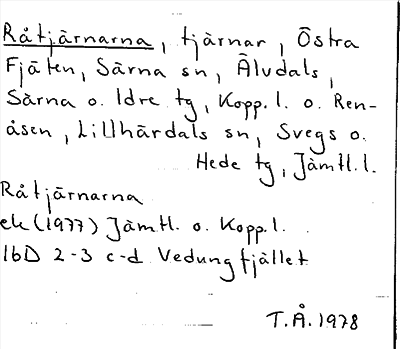 Råtjärnarna, tjärnar, Östra
Fjäten, Särna sn, Älvdals,
Särna o. Idre tg, Kopp.l. o. Ren-
åsen, Lillhärdals sn, Svegs o.
Hede tg, Jämtl.l.
Råtjärnarna
ek (1977) Jämtl. o. Kopp.l.
16D 2-3 c-d Vedungfjället
T.Å. 1978